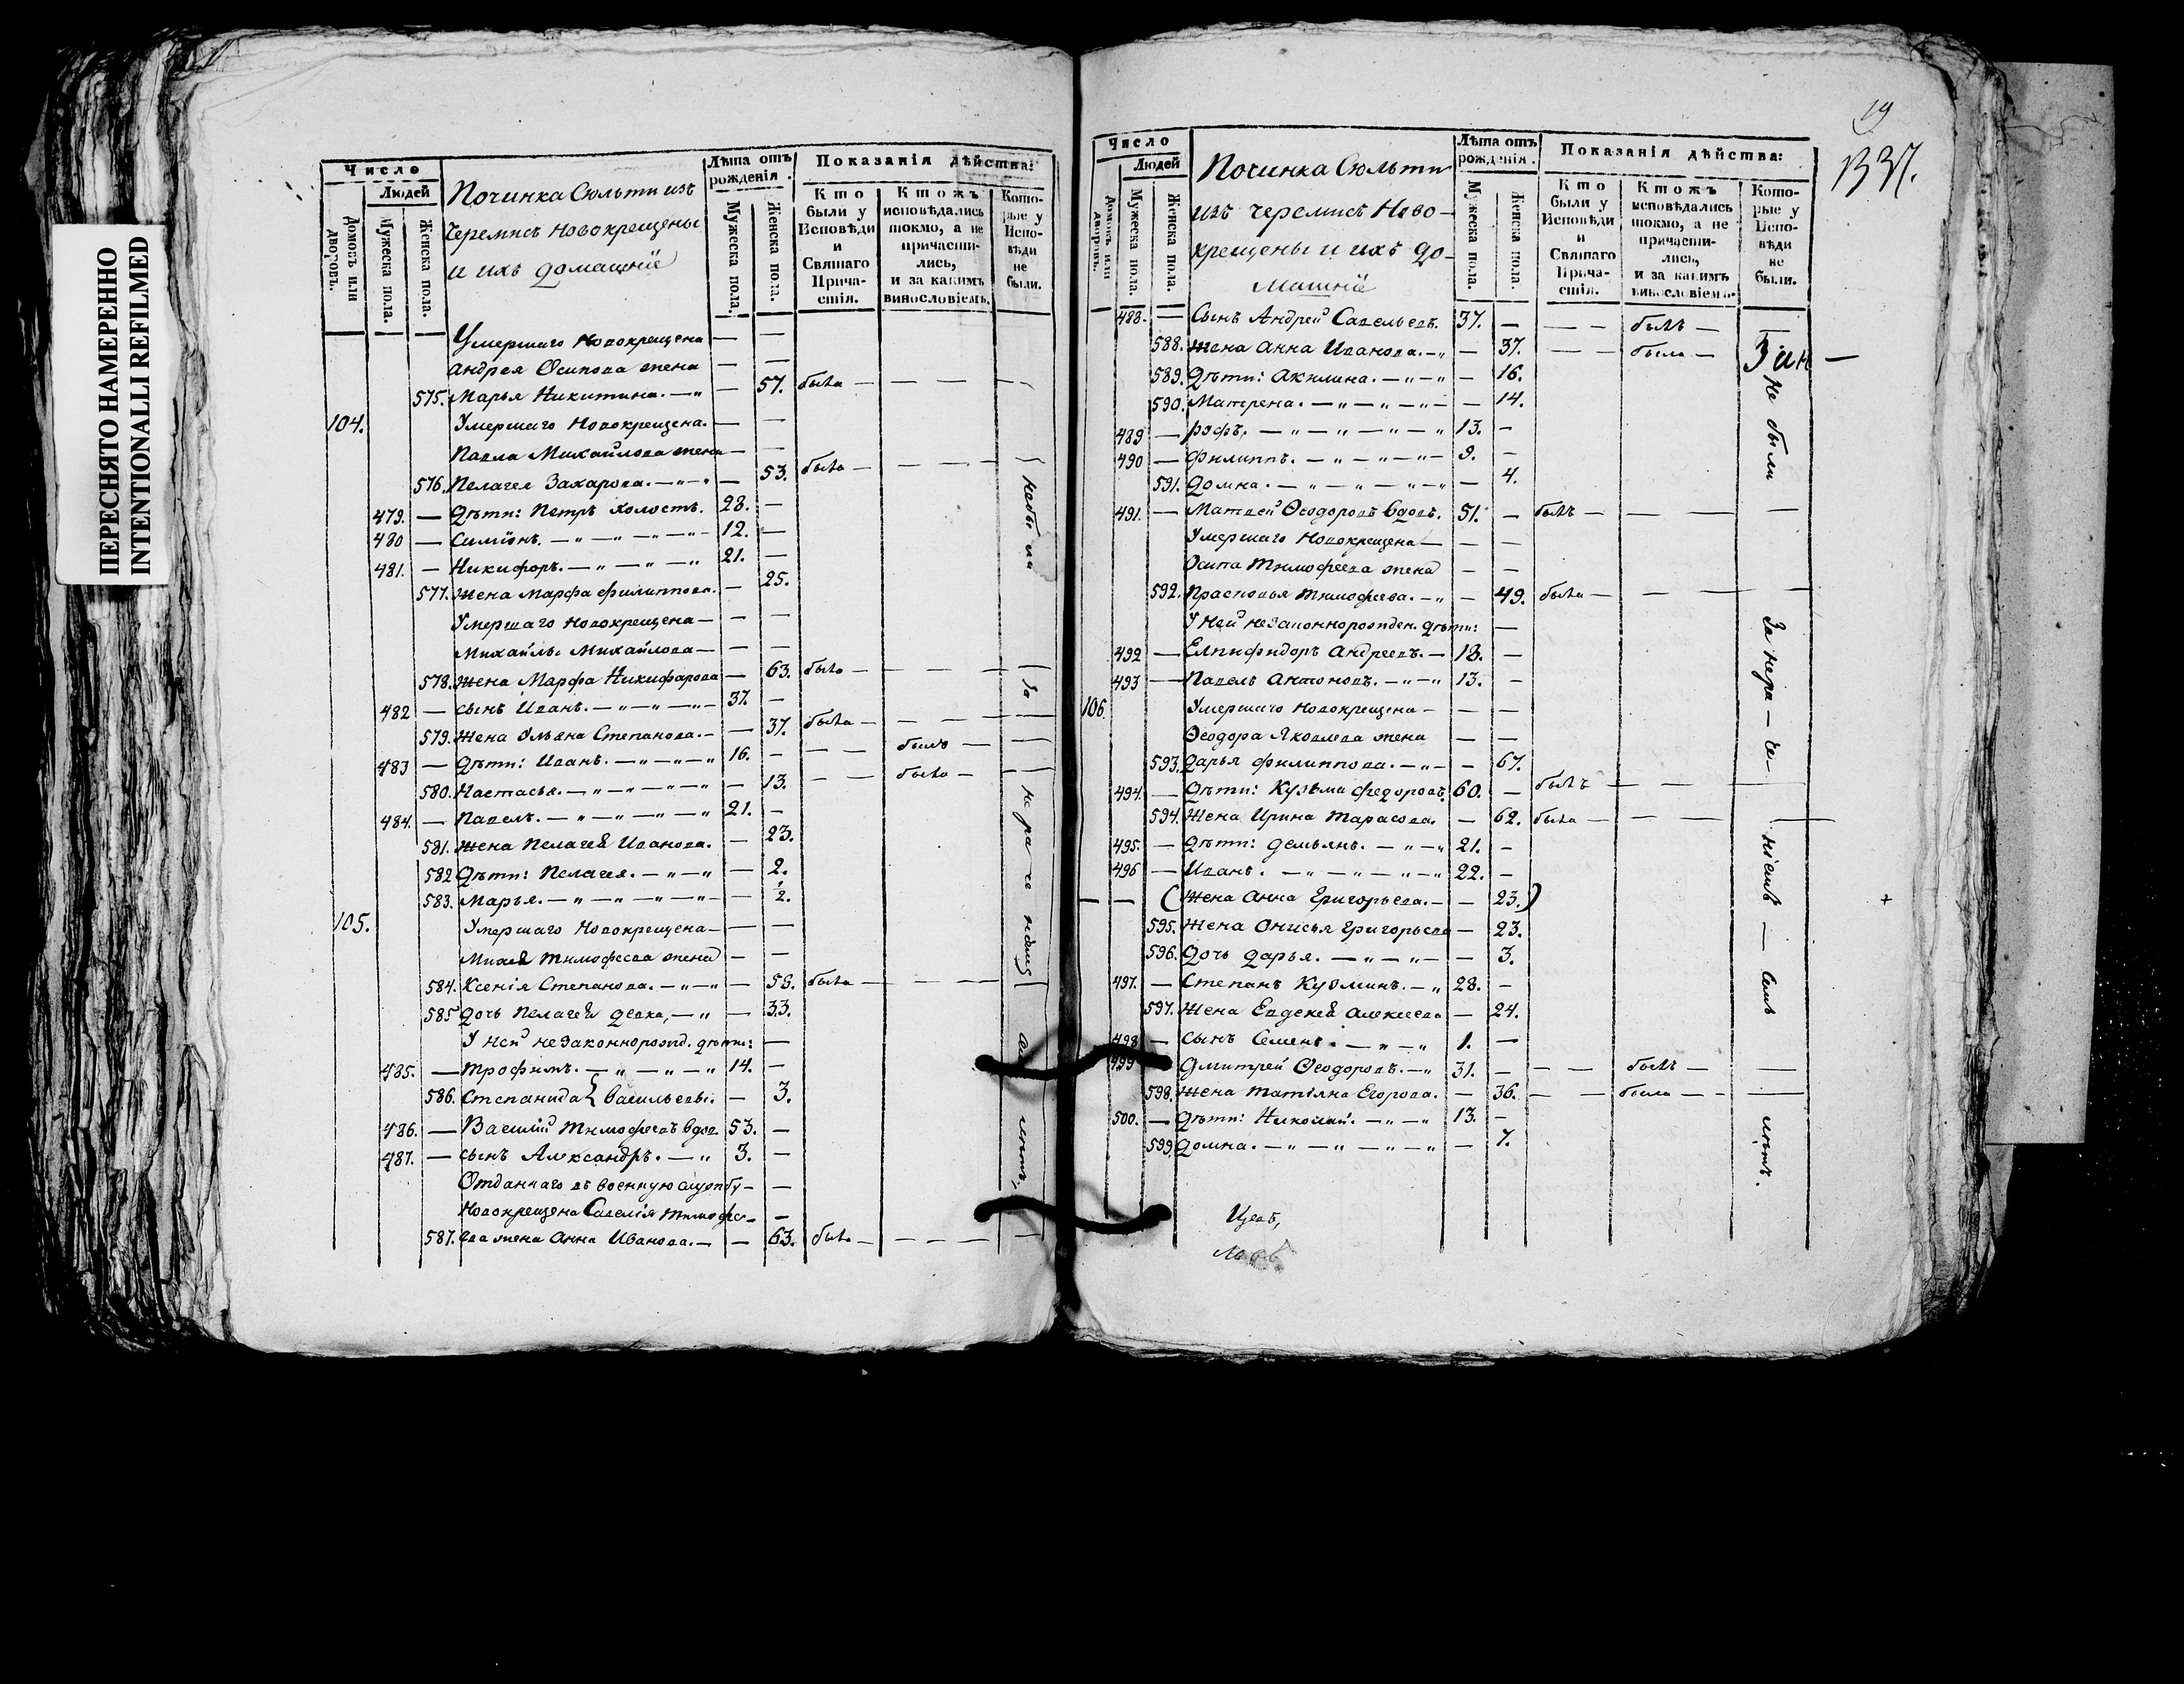 ПЕРЕСНЯТО НАМЕРЕННО
INTENTIONALLI REFILMED
Число
Людей
Домовъ или дворовъ.
Мужеска пола.
Женска пола.
Починка Сюльти изъ
Черемисъ Новокрещены
и ихъ домашніе
Лѣта отъ рожденія.
Мужеска пола.
Женска пола.
Показанія дѣйства:
Кто были у Исповѣди и Святаго Причастія.
Ктожъ исповѣдались токмо, а не причастились, и за какимъ винословіемъ.
Которые у Исповѣди не были.
Умершаго Новокрещена — —
Андрея Осипова жена — —
575. Марья Никитина. — " — 57. была — — — —
104. Умершаго Новокрещена. — —
Павла Михайлова жена — —
576. Пелагея Захарова. — " — " — 53. была — — — —
479. — Дѣти: Петръ холостъ. 28. —
480 — Симіонъ. — " — " — " — 12. —
481. — Никифоръ. — " — " — " 21. —
577. Жена Марфа Филиппова. — 25.
Умершаго Новокрещена — — —
Михайлы Михайлова — — —
578. Жена Марфа Никифарова — 63. была — — — —
482 — Сынъ Иванъ. — " — " — " — 37. —
579. Жена Ульяна Степанова. — — 37. была — — — —
483 — Дѣти: Иванъ. — " — " — " 16. — — — былъ —
580. Настасья. — " — " — " — " — 13. — — была —
484. — Павелъ. — " — " — " — " 21. —
581. Жена Пелагея Иванова. — 23.
582 Дѣти: Пелагея. — " — " — 2.
583. Марья. — " — " — " — " — — 1/2.
105. Умершаго Новокрещена — — —
Михея Тимофеева жена — —
584. Ксенія Степанова. — " — " — 58. была — — — —
585 Дочь Пелагея девка, — " — 33.
У ней незаконнорожд. дѣти: —
485. — Трофимъ. — " — " — " 14. —
586. Степанида } Васильевы. — 3.
486. — Василій Тимофеевъ вдов 53. —
487. — сынъ Александръ. — " 3. —
Отданнаго въ военную службу — —
Новокрещена Савелія Тимофе- —
587. ева жена Анна Иванова. — — 63. была — — — —
не были
За
нераче
ніемъ
19
Число
Людей
Домовъ или дворовъ.
Мужеска пола.
Женска пола.
Починка Сюльти
изъ черемисъ Ново-
крещены и ихъ до-
машніе
Лѣта отъ рожденія.
Мужеска пола.
Женска пола.
Показанія дѣйства:
Кто были у Исповѣди и Святаго Причастія.
Ктожъ исповѣдались токмо, а не причастились, и за какимъ винословіемъ.
Которые у Исповѣди не были.
488. — Сынъ Андрей Савельевъ. 37. — — — былъ —
588. Жена Анна Иванова. — " — 37. — — была —
589. Дѣти: Акилина. — " — " — 16.
590. Матрена. — " — " — " — — 14.
489 — — " — " — " — " 13. —
490 — Филиппъ. — " — " — " — 9. —
591. Домна. — " — " — " — " — 4.
491. — Матвей Ѳеодоровъ вдовъ. 51. — былъ — — — —
Умершаго Новокрещена — — —
Осипа Тимофеева жена — —
592. Прасковья Тимофеева. — " — 49. была — — — —
У ней незаконнорожден. дѣти: —
492 — Елпифидоръ Андреевъ. — 18. —
493 — Павелъ Антоновъ. — " — " 13. —
106. Умершаго Новокрещена — — —
Ѳеодора Яковлева жена — —
593. Дарья Филиппова. — " — — 67.
494. — Дѣти: Кузьма Федоровъ. 60. — былъ — — —
594. Жена Ирина Тарасова. — 62. была — — —
495. — Дѣти: Демьянъ. — " — " 21. —
496 — Иванъ. — " — " — " — " 22. —
— — (Жена Анна Григорьева. — — 23.)
595. Жена Онисья Григорьева — 23.
596. Дочь Дарья. — " — " — — 3.
497. — Степанъ Кузминъ. — " 28. —
597. Жена Евдокея Алексеева — 24.
498 — Сынъ Семенъ. — " — " 1. —
499 — Дмитрей Ѳеодоровъ. — " 31. — — — былъ — —
598. Жена Татіяна Егорова. — 36. — — была — — —
500. — Дѣти: Николай. — " — " 13. —
599. Домна. — " — " — " — " — 7.
не были
За нера — че —
ніемъ —